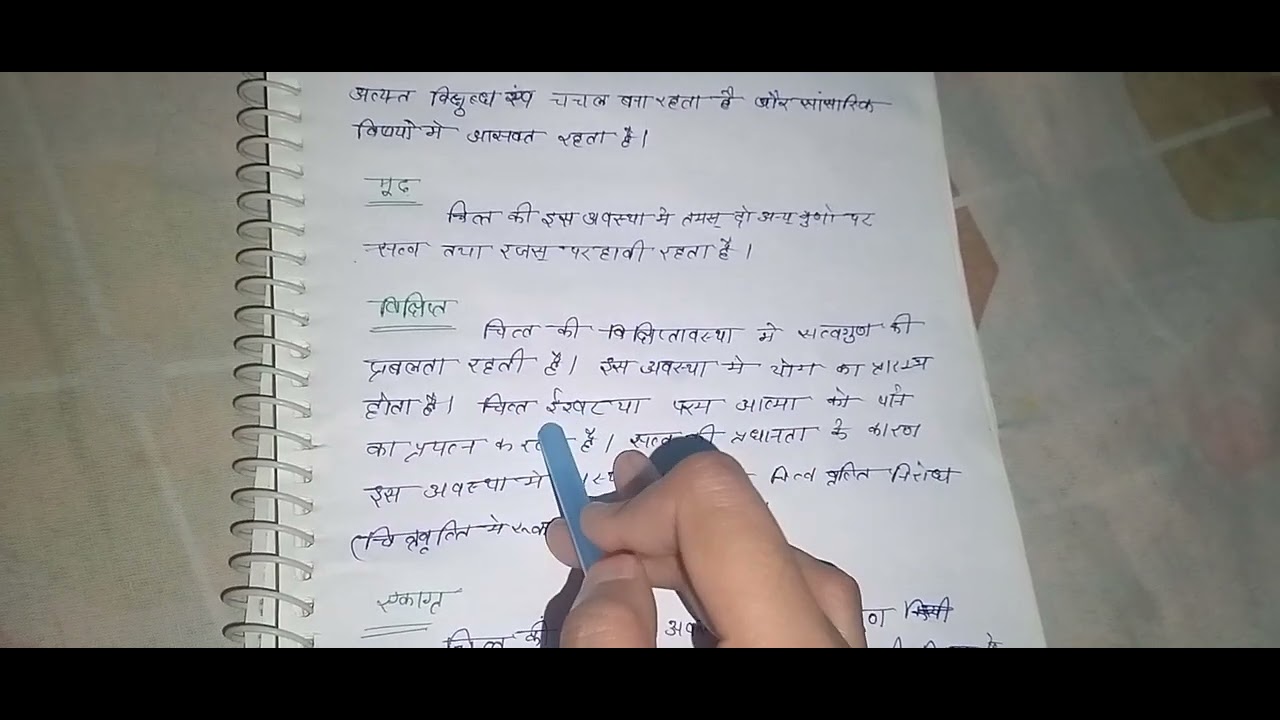 अत्यन्त विक्षुब्ध एंव चचल बना रहता है और सांसारिक
विषयो मे आसक्त रहता है।
मूढ़
चित्त की इस अवस्था मे तमस् दो अन्य गुणो पर
सत्व तथा रजस् पर हावी रहता है।
विक्षिप्त
चित्त की विक्षिप्तावस्था मे सत्वगुण की
प्रबलता रहती है। इस अवस्था मे योग का प्रारम्भ
होता है। चित्त ईश्वर या परम आत्मा को पाने
का प्रयत्न करता है। सत्व की प्रधानता के कारण
इस अवस्था मे चित्त वृत्ति निरोध
चित्तवृत्ति मे
एकाग्र
चित्त की